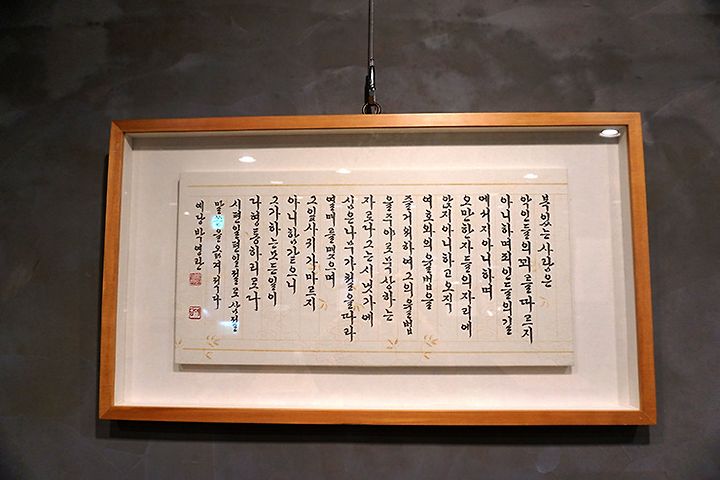 복있는사람은
악인들의꾀를따르지
아니하며죄인들의길
에서지아니하며
오만한자들의자리에
앉지아니하고오직
여호와의율법을
즐거워하여그의율법
을주야로묵상하는
자로다그는시냇가에
심은나무가철을따라
열매를맺으며
그잎사귀가마르지
아니함같으니
그가하는모든일이
다형통하리로다
시편일편일절로삼절
말씀을옮겨적다
예당 박영란